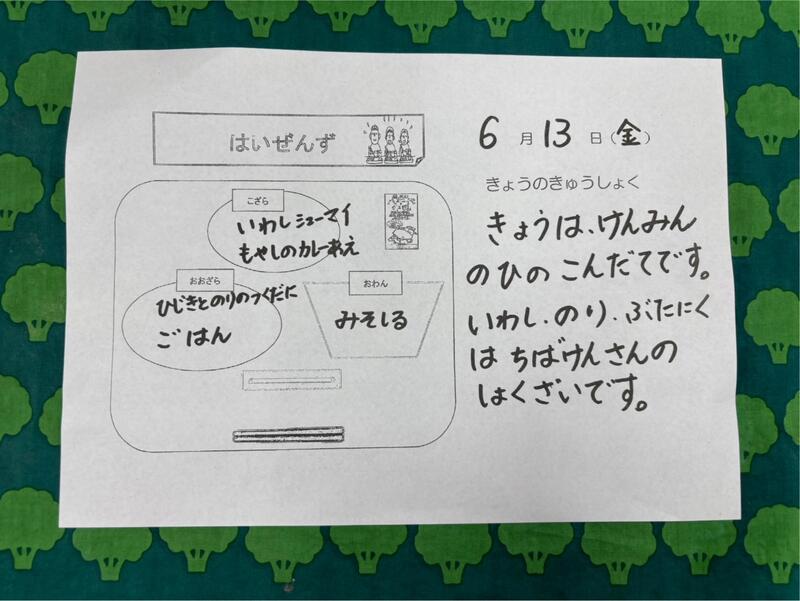 はいぜんず
こざら
いわしシューマイ
もやしのカレーあえ
おおざら
ひじきとのりのつくだに
ごはん
おわん
みそしる
6月13日(金)
きょうのきゅうしょく
きょうは、けんみん
のひの こんだてです。
いわし、のり、ぶたにく
は ちばけんさんの
しょくざいです。